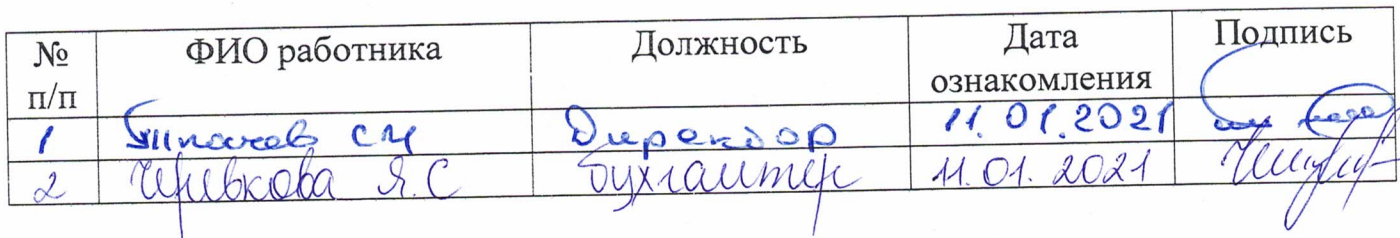 № п/п ФИО работника Должность Дата ознакомления Подпись
1 С И Директор 11.01.2021
2 Черевкова Я.С бухгалтер 11.01.2021